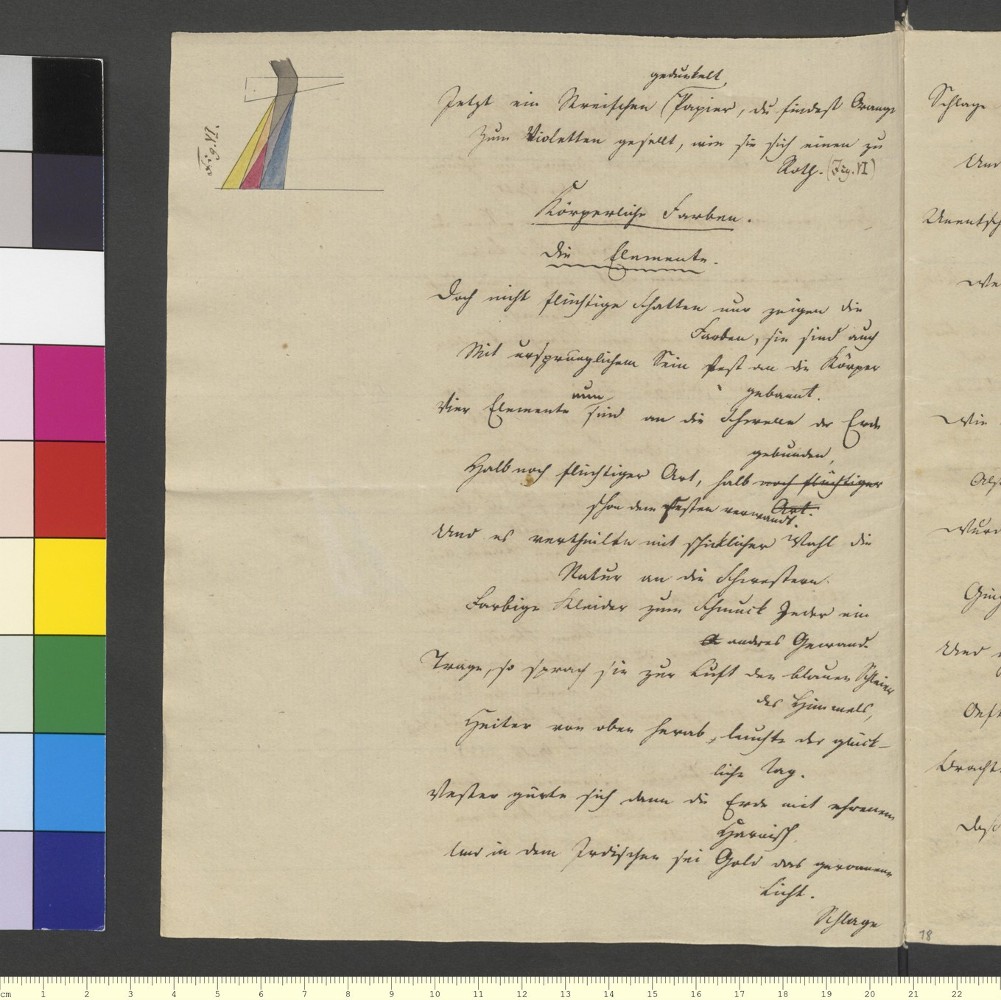 Fig. VI.
gedunkelt,
Jetzt ein Streifchen (Papier, du findest Orange
Zum Violetten gesellt, wie sie sich einen zu
Roth. (Fig. VI)
Körperliche Farben.
Die Elemente.
Doch nicht flüchtige Schatten nur zeigen die
Farben, sie sind auch
Mit ursprünglichem Sein fest an die Körper
gebannt.
nun
Vier Elemente sind an die Schwelle der Erde
gebunden,
Halb noch flüchtiger Art, halb noch flüchtiger
Art.
schon dem Festen verwandt.
Und es vertheilte mit schicklicher Wahl die
Natur an die Schwestern.
Farbige Kleider zum Schmuck Jeder ein
anderes Gewand.
Trage, so sprach sie zur Luft den blauen Schleier
des Himmels,
Heiter von oben herab, leuchte der glück-
liche Tag.
Fester gürte sich dann die Erde mit ehernem
Harnisch
Und in dem Irdischen sei Gold das geronnene
Licht.
Schlage
18
Schlage
Und
Unentsch
We
Wie
Als
Wurd
Und
Oeft
Bracht
Daß
cm 1 2 3 4 5 6 7 8 9 10 11 12 13 14 15 16 17 18 19 20 21 22